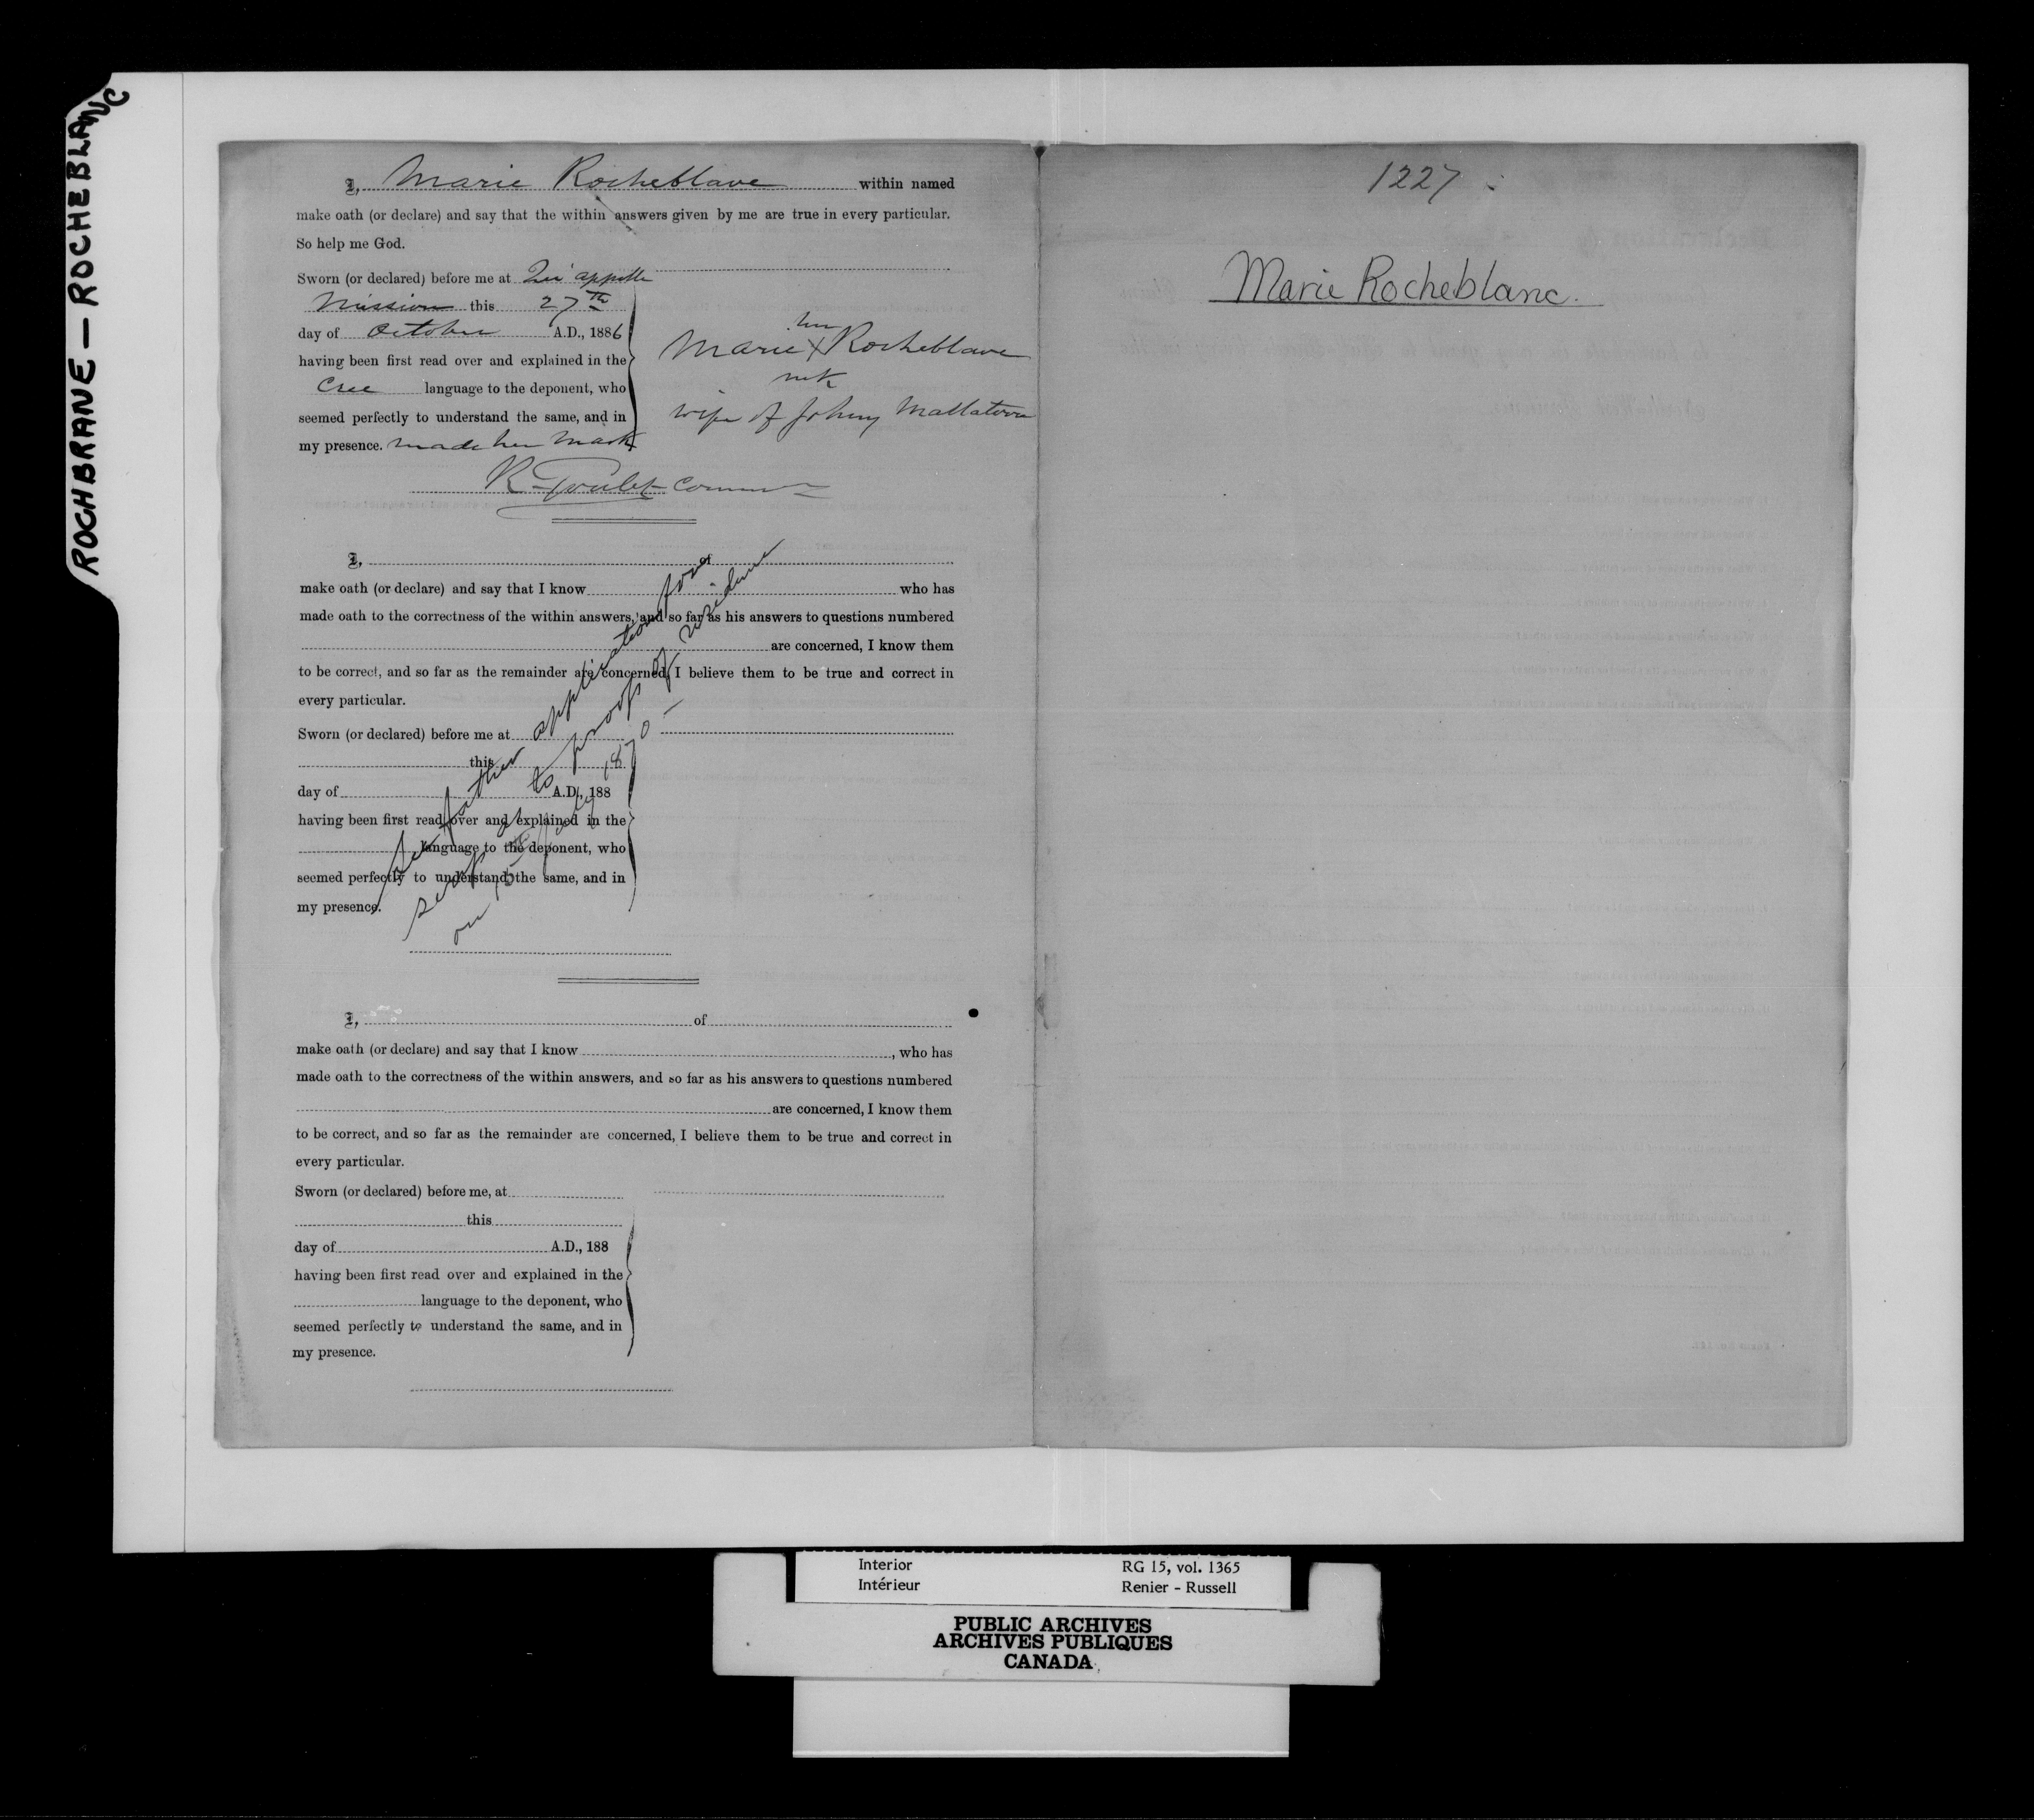 ROCHBRANE — ROCHEBLANC
I, Marie Rocheblave within named
make oath (or declare) and say that the within answers given by me are true in every particular.
So help me God.
Sworn (or declared) before me at Qu'appelle
Mission this 27th
day of October A.D., 1886
having been first read over and explained in the
Cree language to the deponent, who
seemed perfectly to understand the same, and in
my presence. made her mark
her
Marie X Rocheblave
mk
wife of Johny
R Goulet Comm
I, of
make oath (or declare) and say that I know who has
made oath to the correctness of the within answers, and so far as his answers to questions numbered
are concerned, I know them
to be correct, and so far as the remainder are concerned, I believe them to be true and correct in
every particular.
Sworn (or declared) before me at
this
day of A.D., 188
having been first read over and explained in the
language to the deponent, who
seemed perfectly to understand the same, and in
my presence.
father application for
as to proofs of residence
on 15th July 1870 —
I, of
make oath (or declare) and say that I know , who has
made oath to the correctness of the within answers, and so far as his answers to questions numbered
are concerned, I know them
to be correct, and so far as the remainder are concerned, I believe them to be true and correct in
every particular.
Sworn (or declared) before me, at
this
day of A.D., 188
having been first read over and explained in the
language to the deponent, who
seemed perfectly to understand the same, and in
my presence.
1227
Marie Rocheblanc.
Interior RG 15, vol. 1365
Intérieur Renier - Russell
PUBLIC ARCHIVES
ARCHIVES PUBLIQUES
CANADA